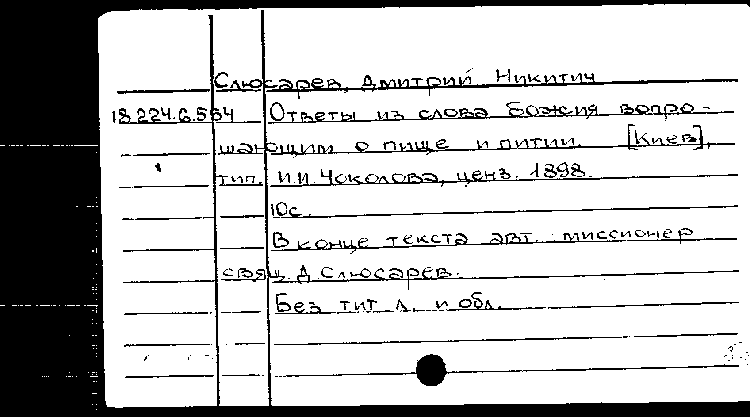 Слюсарев, Дмитрий Никитич
18.224.6.564 Ответы из слова Божия вопро-
шающим о пище и питии. [Киев],
тип. И.И. Чоколова, ценз. 1898.
10с.
В конце текста авт. миссионер
свящ. Д. Слюсарев.
Без тит. л. и обл.